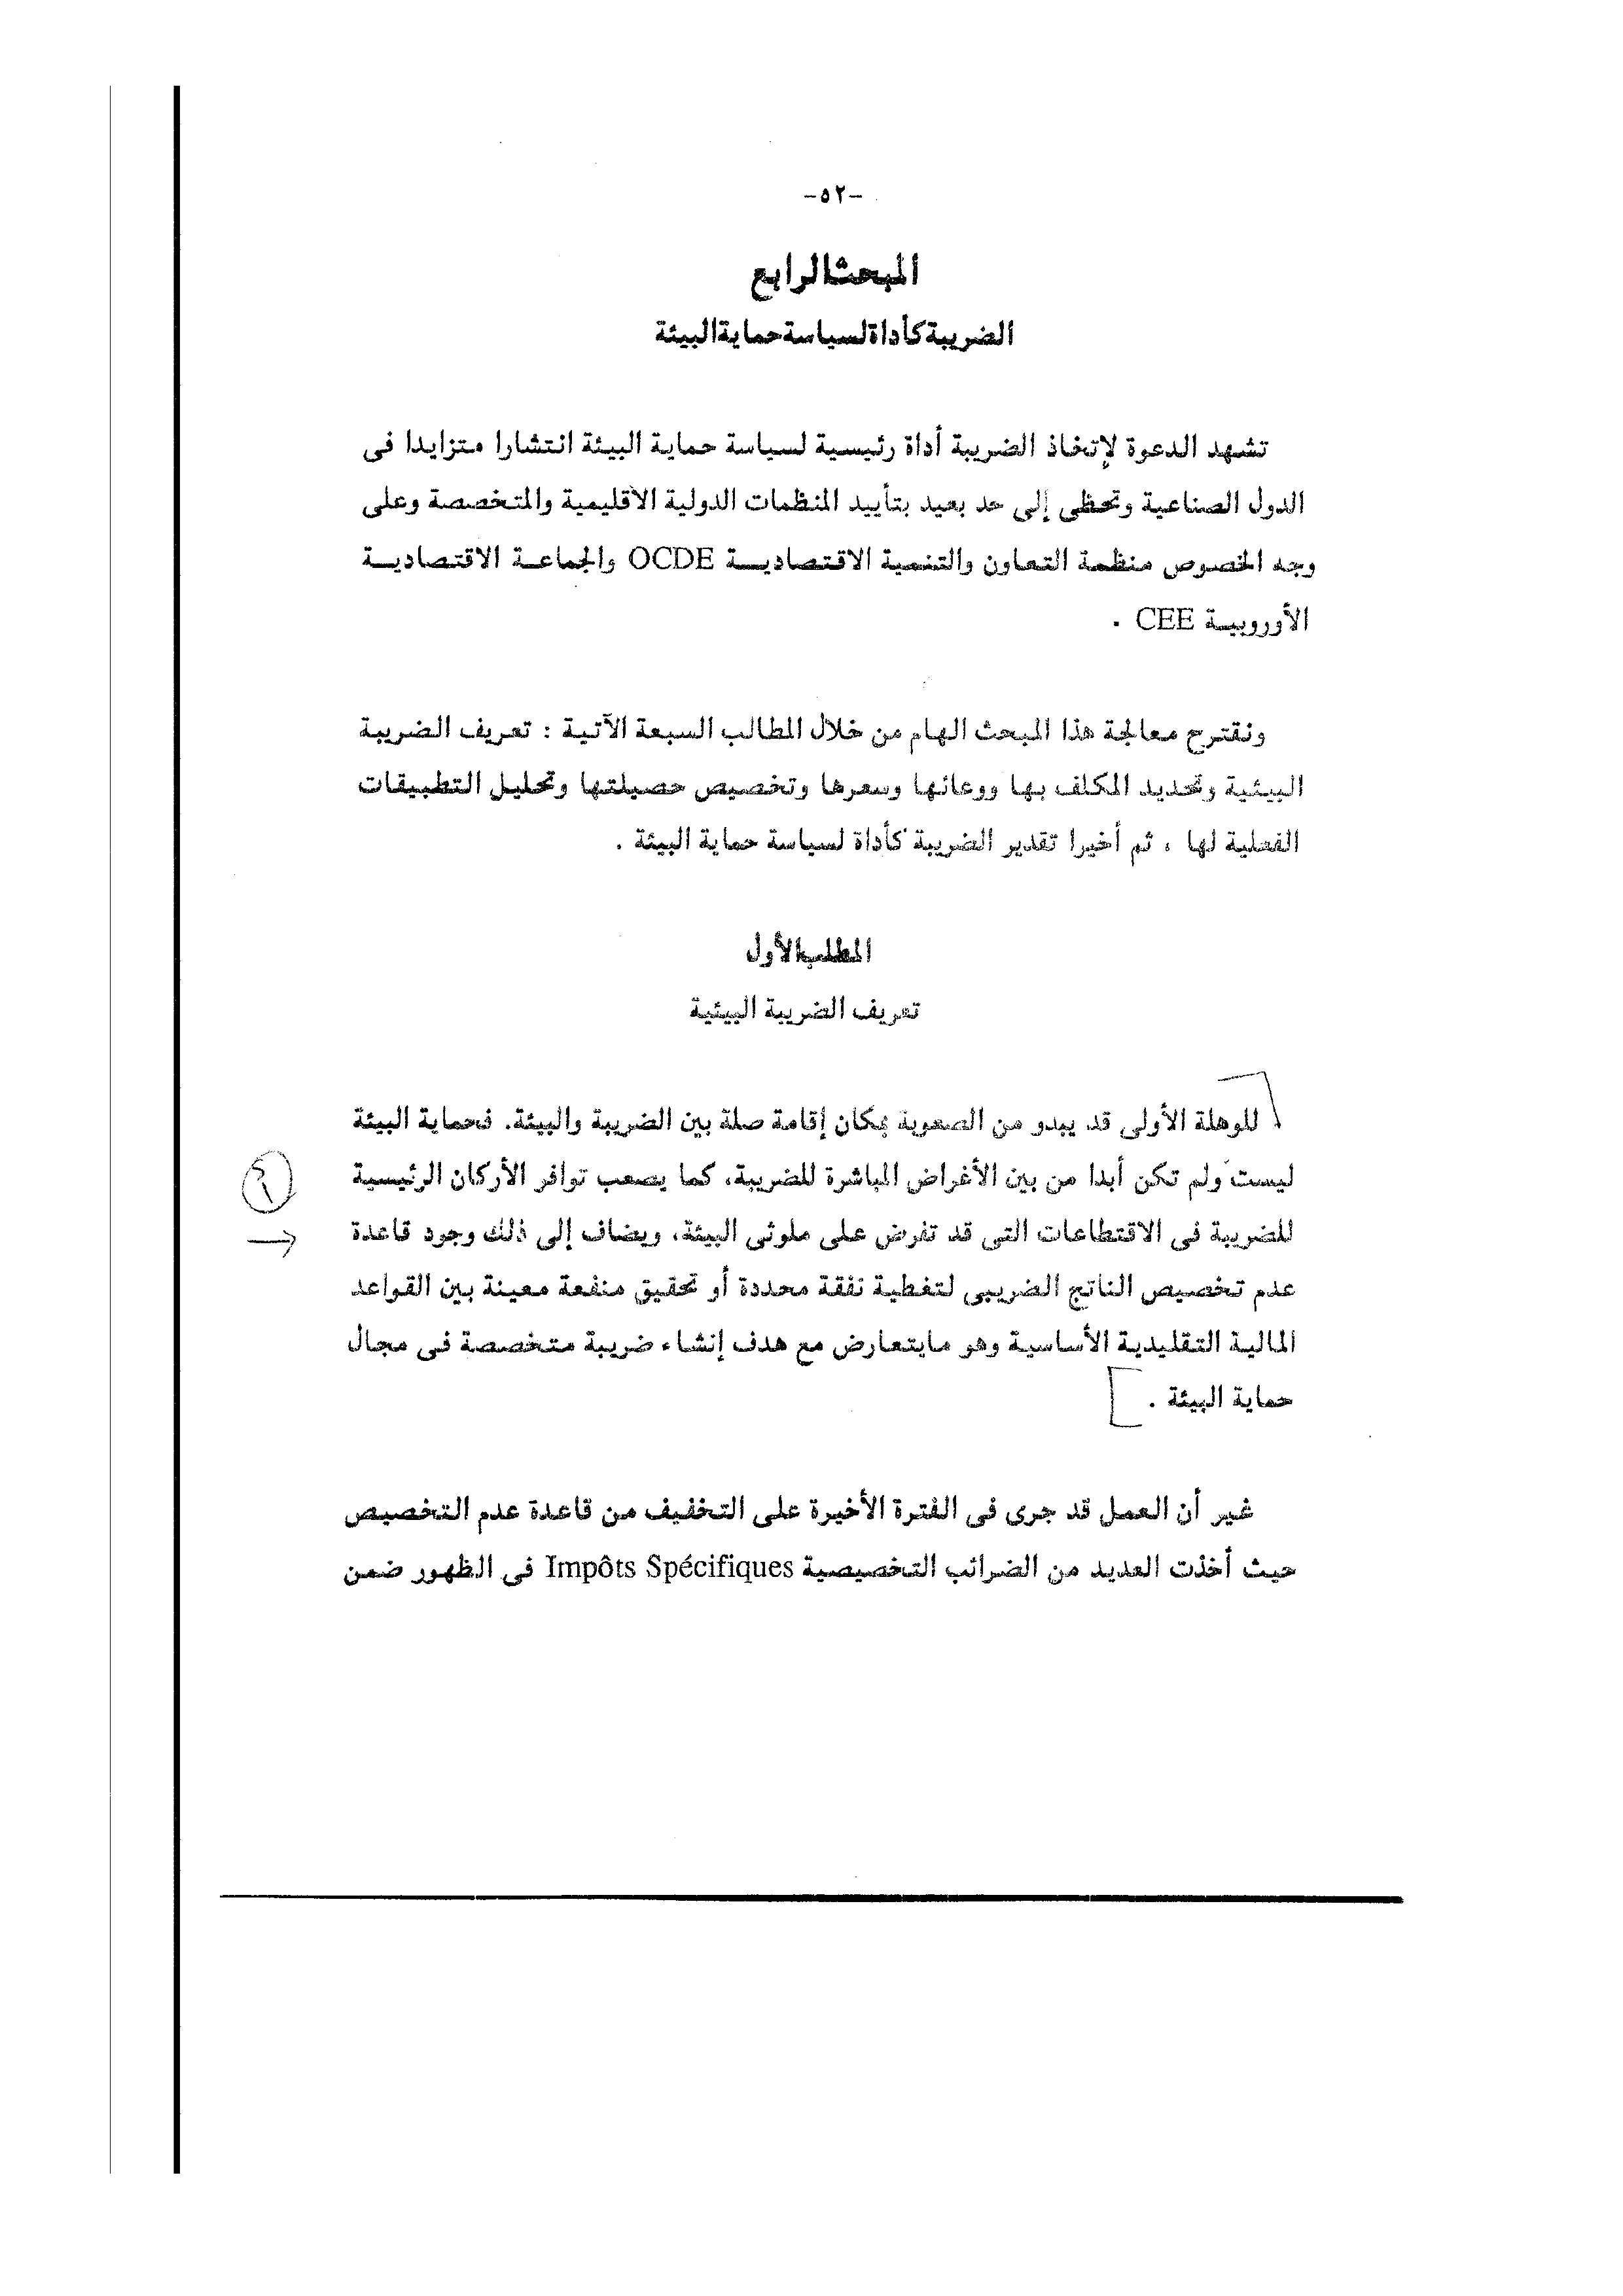 -٥٢-
المبحث الرابع
الضريبة كأداة لسياسة حماية البيئة
تشهد الدعوة لإتخاذ الضريبة أداة رئيسية لسياسة حماية البيئة انتشارا متزايدا فى
الدول الصناعية وتحظى إلى حد بعيد بتأييد المنظمات الدولية الأقليمية والمتخصصة وعلى
وجه الخصوص منظمة التعاون والتنمية الاقتصاديــة OCDE والجماعـة الاقتصاديــة
الأوروبيــة CEE .
ونقترح معالجة هذا المبحث الهام من خلال المطالب السبعة الآتية : تعريف الضريبة
البيئية وتحديد المكلف بها ووعائها وسعرها وتخصيص حصيلتها وتحليل التطبيقات
الفعلية لها ، ثم أخيرا تقدير الضريبة كأداة لسياسة حماية البيئة .
المطلب الأول
تعريف الضريبة البيئية
للوهلة الأولى قد يبدو من الصعوبة بمكان إقامة صلة بين الضريبة والبيئة. فحماية البيئة
ليست ولم تكن أبدا من بين الأغراض المباشرة للضريبة، كما يصعب توافر الأركان الرئيسية
للضريبة فى الاقتطاعات التى قد تفرض على ملوثى البيئة، ويضاف إلى ذلك وجود قاعدة
عدم تخصيص الناتج الضريبى لتغطية نفقة محددة أو تحقيق منفعة معينة بين القواعد
المالية التقليدية الأساسية وهو مايتعارض مع هدف إنشاء ضريبة متخصصة فى مجال
حماية البيئة .
غير أن العمل قد جرى فى الفترة الأخيرة على التخفيف من قاعدة عدم التخصيص
حيث أخذت العديد من الضرائب التخصيصية Impôts Spécifiques فى الظهور ضمن